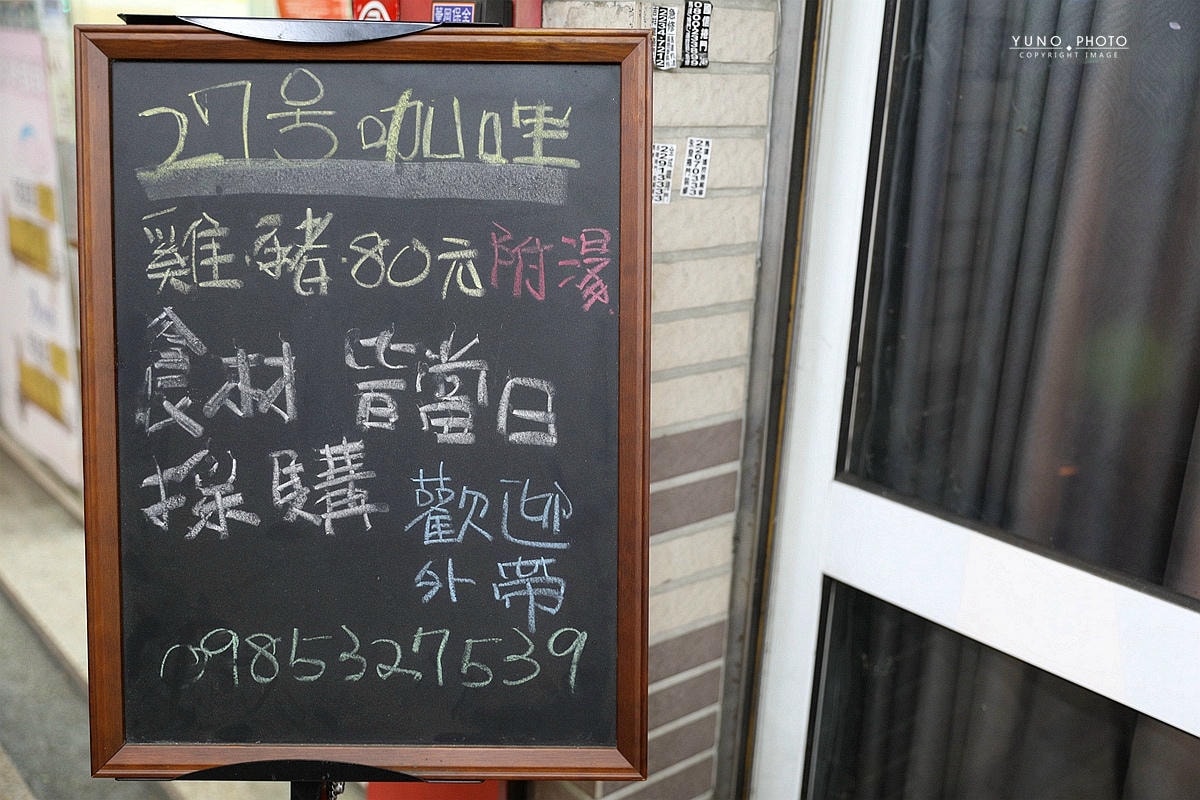 27号咖哩
雞·豬·80元附湯
食材 皆當日
採購
歡迎
外帶
0985327539
YUNO PHOTO
COPYRIGHT IMAGE